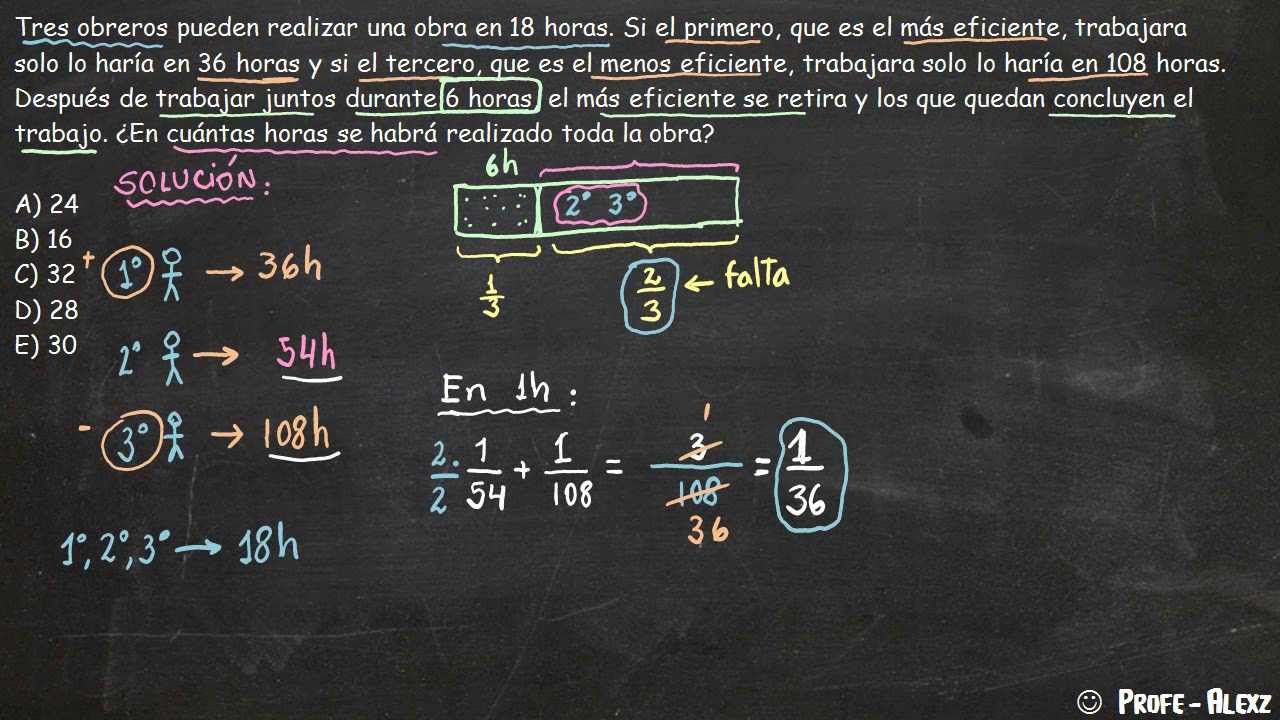 Tres obreros pueden realizar una obra en 18 horas. Si el primero, que es el más eficiente, trabajara
solo lo haría en 36 horas y si el tercero, que es el menos eficiente, trabajara solo lo haría en 108 horas.
Después de trabajar juntos durante 6 horas el más eficiente se retira y los que quedan concluyen el
trabajo. ¿En cuántas horas se habrá realizado toda la obra?
SOLUCIÓN:
A) 24
B) 16
C) 32
D) 28
E) 30
+ 1° → 36h
2° → 54h
- 3° → 108h
1°, 2°, 3° → 18h
6h
2° 3°
1/3
2/3 ← falta
En 1h:
2/2 · 1/54 + 1/108 = 3/108 = 1/36
1
36
☺ PROFE - ALEXZ